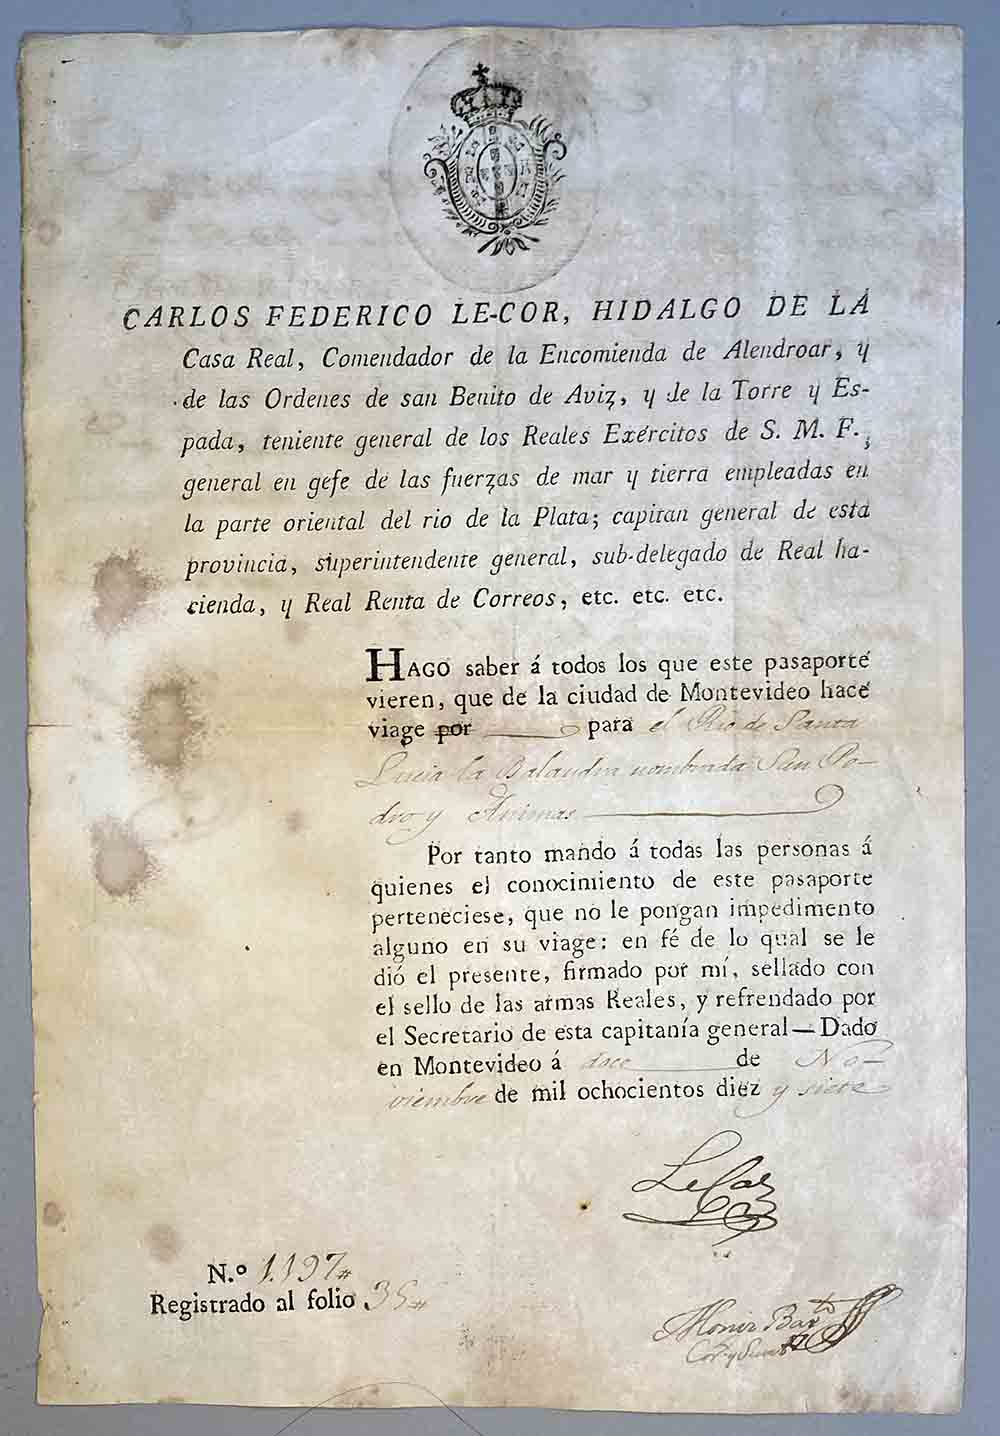 CARLOS FEDERICO LE-COR, HIDALGO DE LA
Casa Real, Comendador de la Encomienda de Alendroar, y
de las Ordenes de san Benito de Aviz, y de la Torre y Es-
pada, teniente general de los Reales Exércitos de S. M. F.,
general en gefe de las fuerzas de mar y tierra empleadas en
la parte oriental del rio de la Plata; capitan general de esta
provincia, superintendente general, sub-delegado de Real ha-
cienda, y Real Renta de Correos, etc. etc. etc.
HAGO saber á todos los que este pasaporte
vieren, que de la ciudad de Montevideo hace
viage por para el Rio de Santa
Lucia la Balandra nombrada San Pe-
dro y Animas
Por tanto mando á todas las personas á
quienes el conocimiento de este pasaporte
perteneciese, que no le pongan impedimento
alguno en su viage: en fé de lo qual se le
dió el presente, firmado por mí, sellado con
el sello de las armas Reales, y refrendado por
el Secretario de esta capitanía general—Dado
en Montevideo á doce de No-
viembre de mil ochocientos diez y siete
LeCor
N.º 1.197#
Registrado al folio 35#